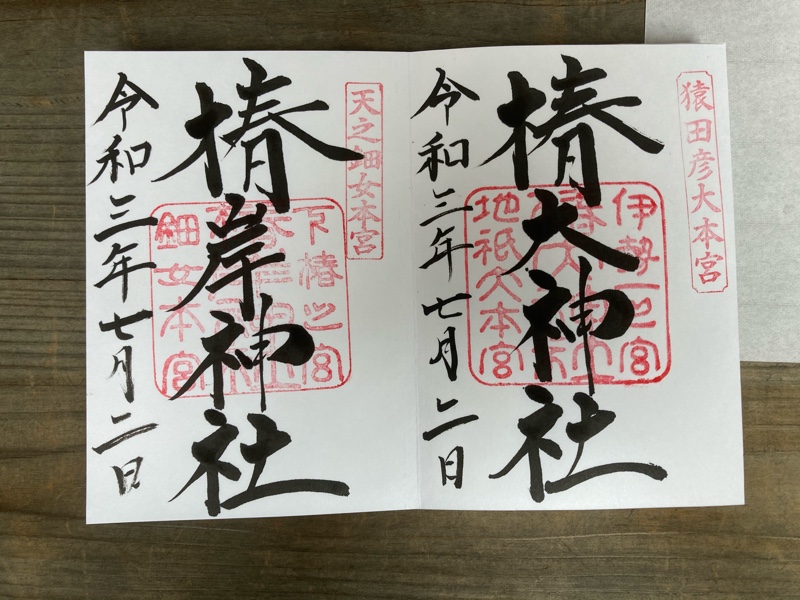 猿田彦大本宮
椿大神社
伊勢一之宮
地祇大本宮
令和三年七月二日
天之鈿女本宮
椿岸神社
下椿之宮
鈿女本宮
令和三年七月二日